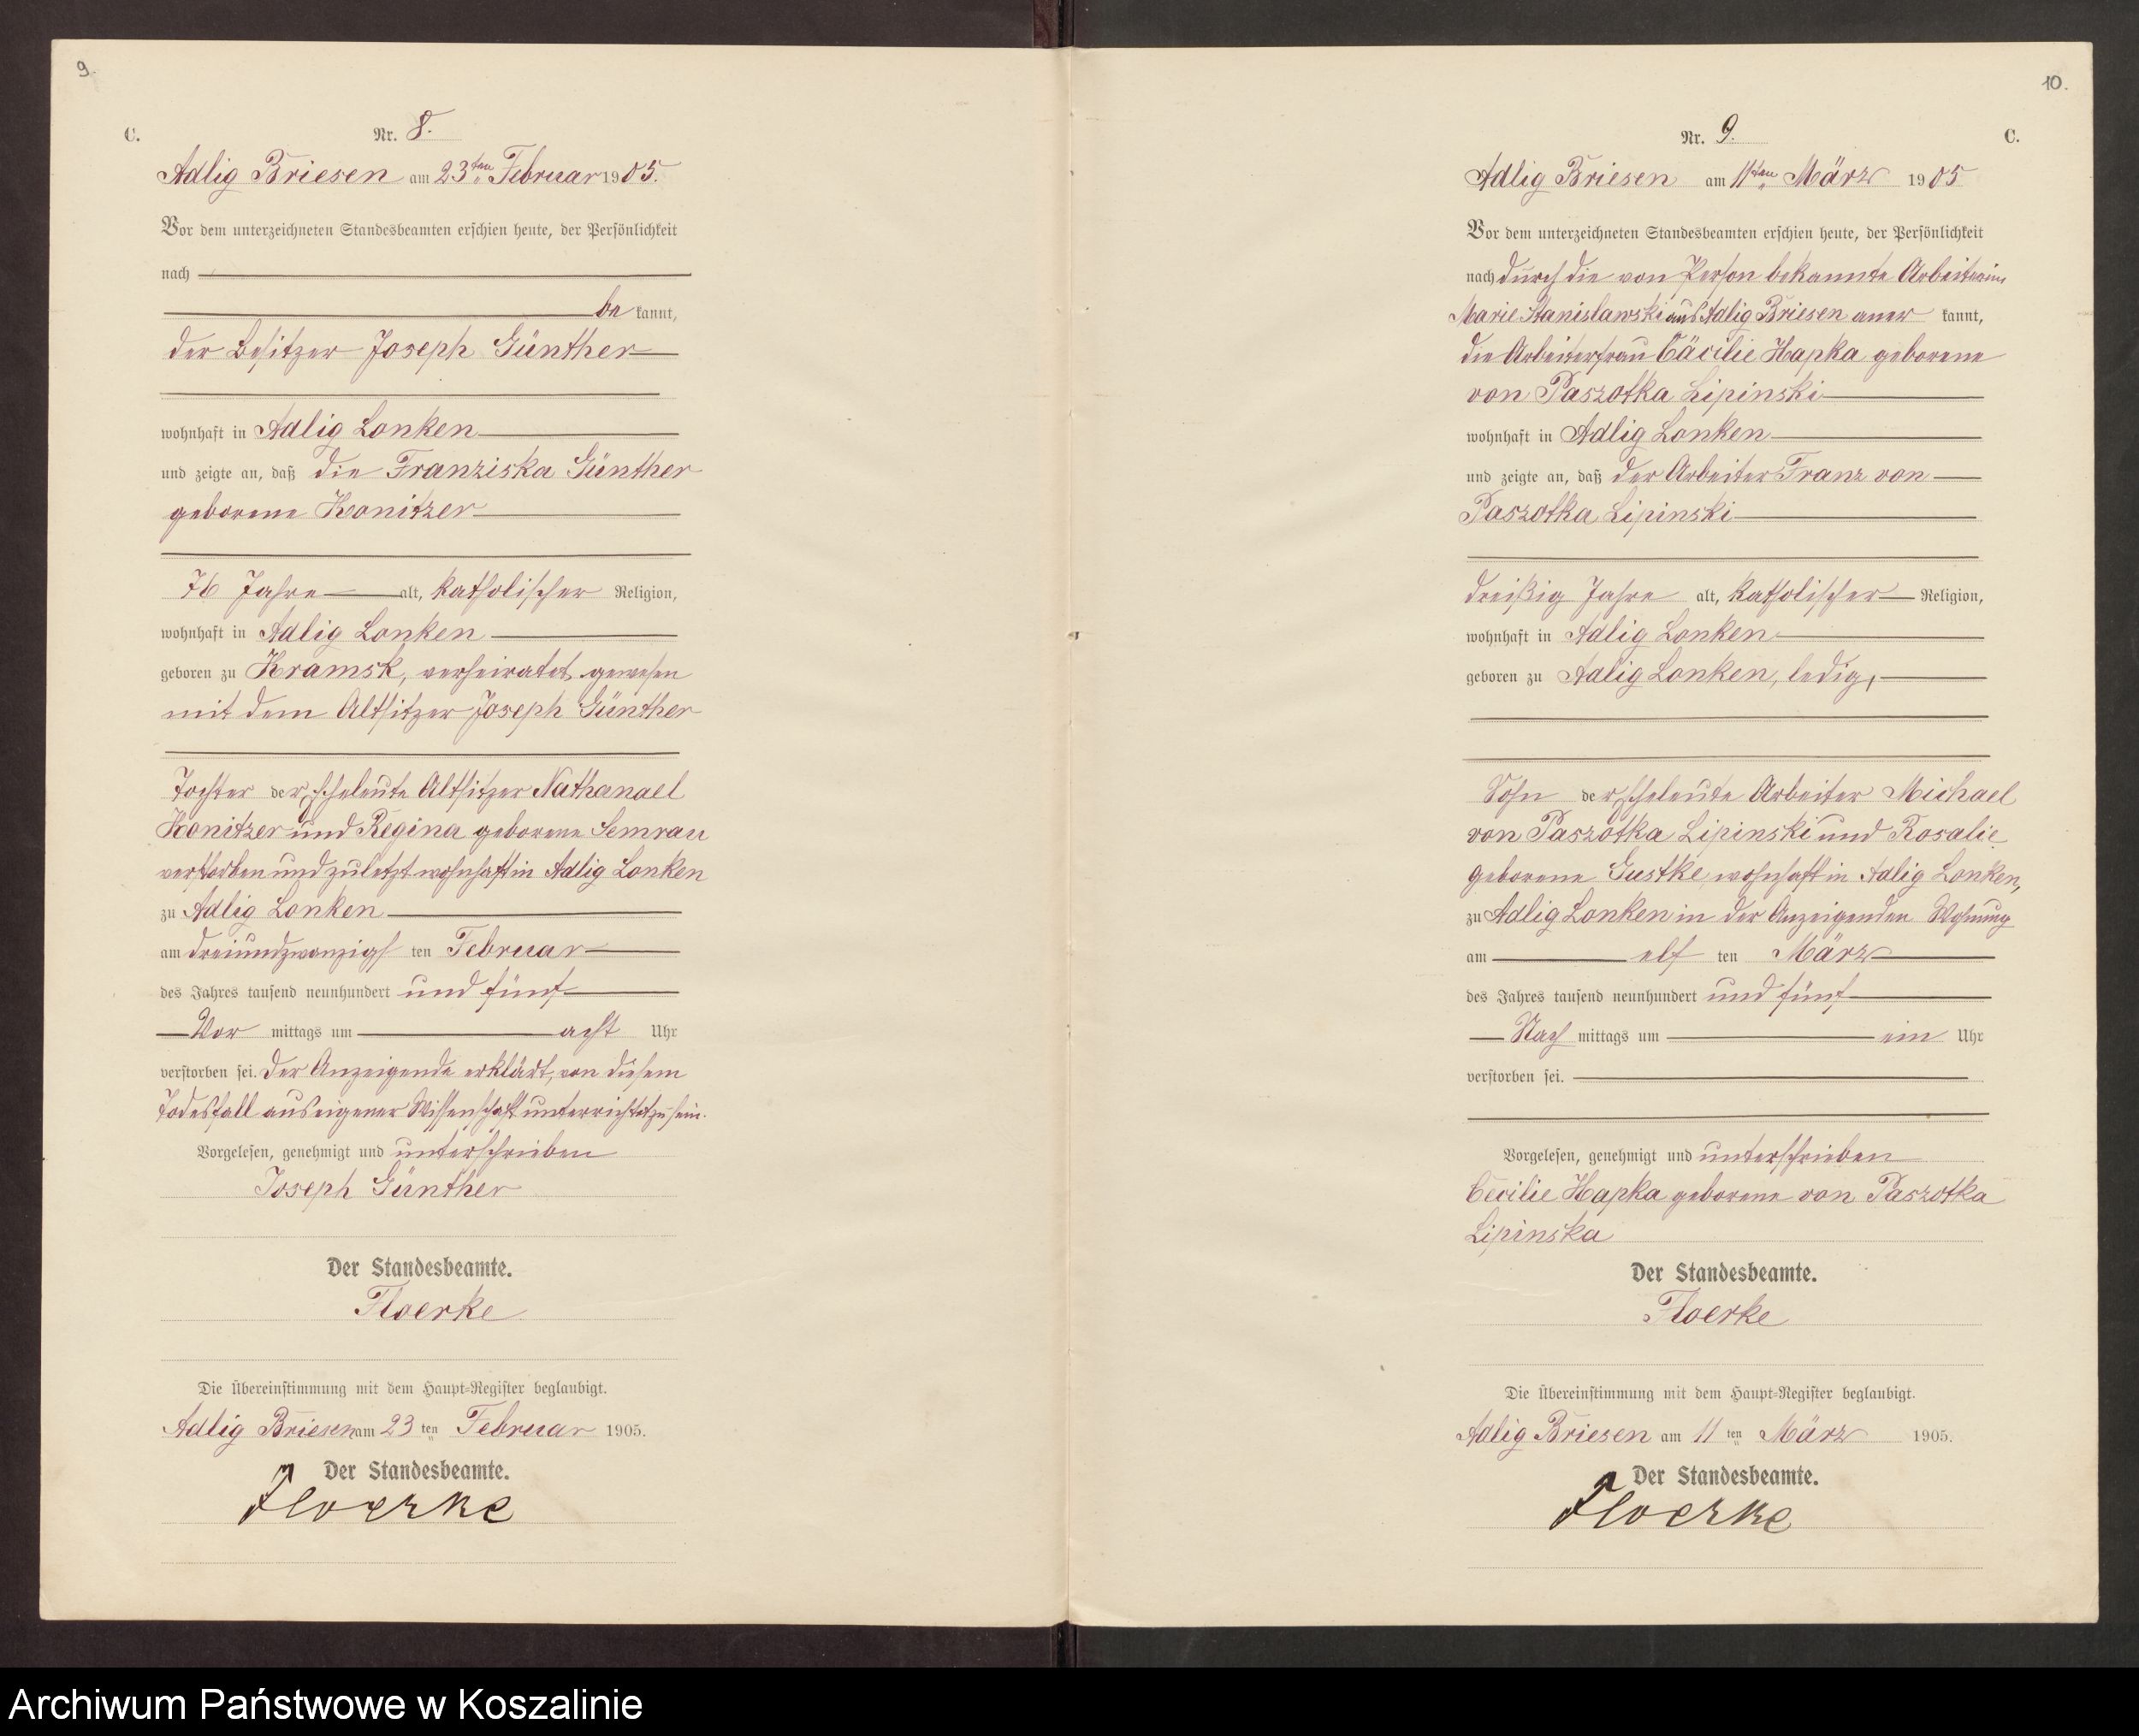 9.
C.
Nr. 8.
Adlig Briesen am 23ten Februar 1905.
Vor dem unterzeichneten Standesbeamten erschien heute, der Persönlichkeit
nach
be kannt,
der Besitzer Joseph Günther
wohnhaft in Adlig Lonken
und zeigte an, daß die Franziska Günther
geborene Konitzer
76 Jahre alt, katholischer Religion,
wohnhaft in Adlig Lonken
geboren zu Kramsk, verheiratet gewesen
mit dem Altsitzer Joseph Günther
Tochter der Eheleute Altsitzer Nathanael
Konitzer und Regina geborene Semrau
verstorben und zuletzt wohnhaft in Adlig Lonken
zu Adlig Lonken
am dreiundzwanzigs ten Februar
des Jahres tausend neunhundert und fünf
Vor mittags um acht Uhr
verstorben sei. Der Anzeigende erklärt, von diesem
Todesfall aus eigener Wissenschaft unterrichtet zu sein.
Vorgelesen, genehmigt und unterschrieben
Joseph Günther
Der Standesbeamte.
Floerke
Die Übereinstimmung mit dem Haupt-Register beglaubigt.
Adlig Briesen am 23 ten Februar 1905.
Der Standesbeamte.
Floerke
10.
Nr. 9.
C.
Adlig Briesen am 11ten März 1905
Vor dem unterzeichneten Standesbeamten erschien heute, der Persönlichkeit
nach durch die von Person bekannte Arbeiterin
Marie Stanislawski aus Adlig Briesen aner kannt,
die Arbeiterfrau Cäcilie Hapka geborene
von Paszotka Lipinski
wohnhaft in Adlig Lonken
und zeigte an, daß der Arbeiter Franz von
Paszotka Lipinski
dreißig Jahre alt, katholischer Religion,
wohnhaft in Adlig Lonken
geboren zu Adlig Lonken, ledig,
Sohn der Eheleute Arbeiter Michael
von Paszotka Lipinski und Rosalie
geborene Gustke, wohnhaft in Adlig Lonken,
zu Adlig Lonken in der Anzeigenden Wohnung
am elf ten März
des Jahres tausend neunhundert und fünf
Nach mittags um ein Uhr
verstorben sei.
Vorgelesen, genehmigt und unterschrieben
Cecilie Hapka geborene von Paszotka
Lipinska
Der Standesbeamte.
Floerke
Die Übereinstimmung mit dem Haupt-Register beglaubigt.
Adlig Briesen am 11 ten März 1905.
Der Standesbeamte.
Floerke
Archiwum Państwowe w Koszalinie